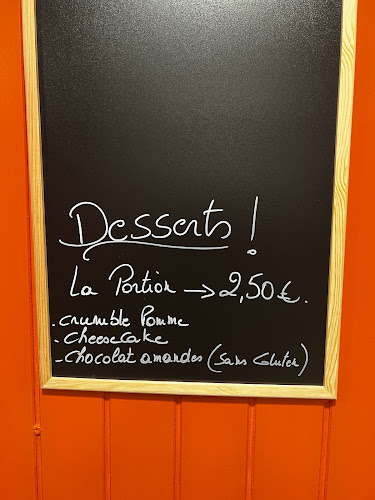 Desserts !
La Portion → 2,50 €.
- crumble Pomme
- cheesecake
- chocolat amandes (sans Gluten)